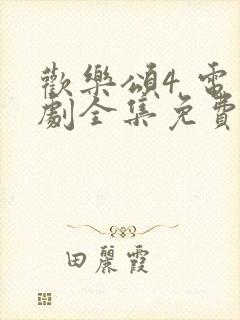 歡樂頌4 電
劇全集免費
田麗霞